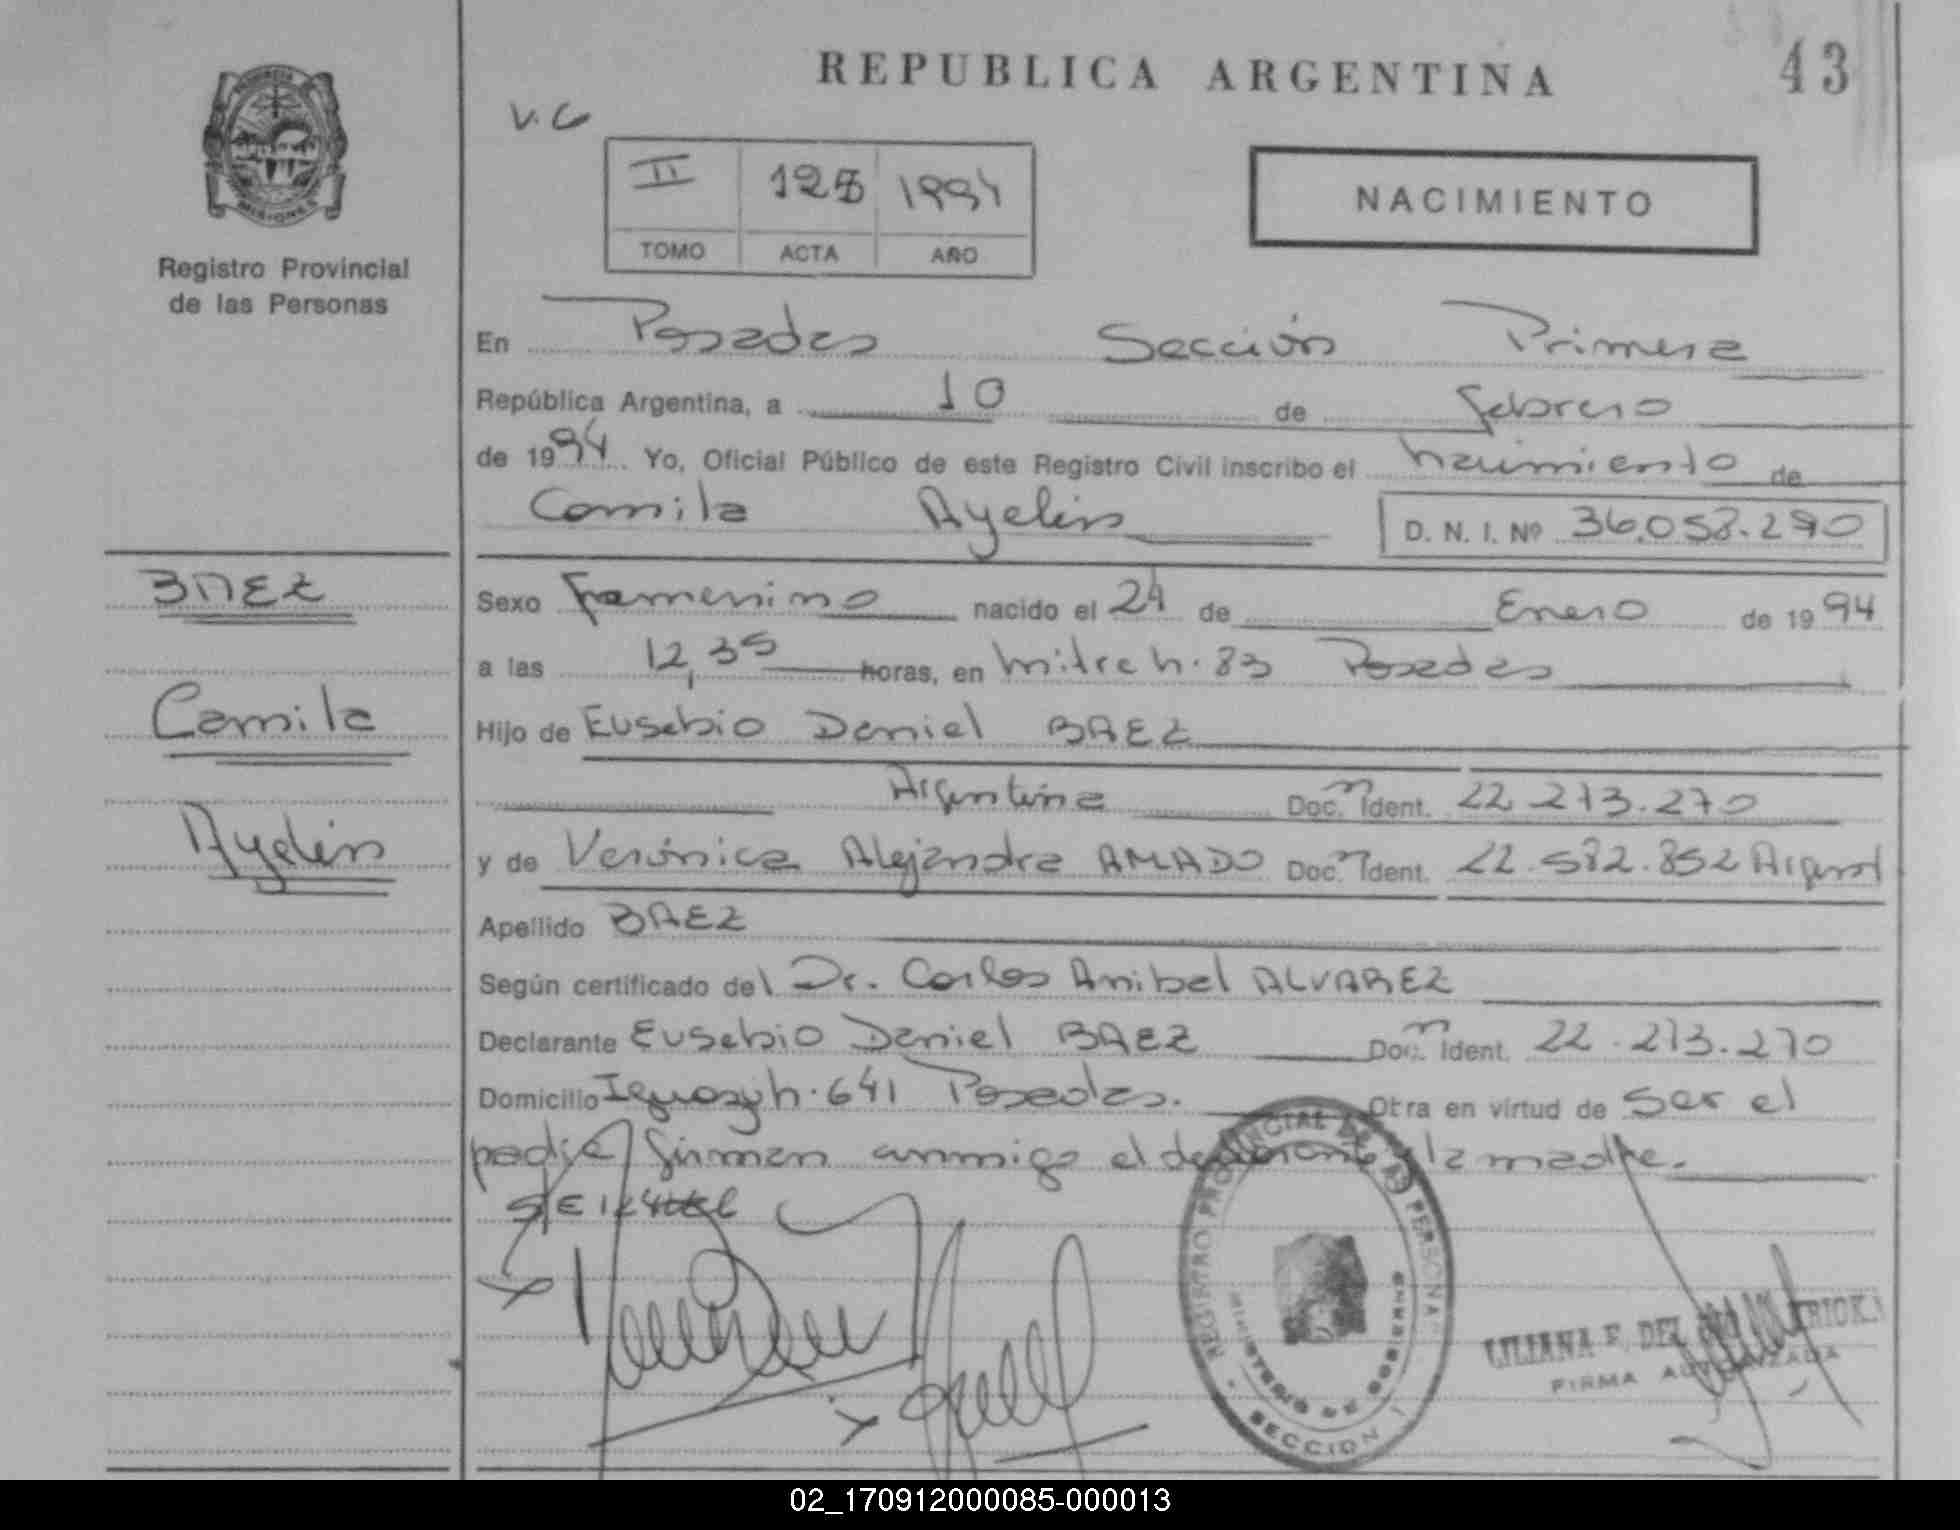 REPUBLICA ARGENTINA
43
V.G
II 125 1994
TOMO ACTA AÑO
NACIMIENTO
PROVINCIA
MISIONES
Registro Provincial
de las Personas
En Posadas Sección Primera
República Argentina, a 10 de febrero
de 1994 Yo, Oficial Público de este Registro Civil inscribo el nacimiento de
Camila Ayelén
D. N. I. Nº 36.058.290
BAEZ
Camila
Ayelén
Sexo femenino nacido el 24 de Enero de 1994
a las 12,35 horas, en Mitre n. 83 Posadas
Hijo de Eusebio Daniel BAEZ
Argentina Doc. Ident. 22.273.270
y de Verónica Alejandra AMADO Doc. Ident. 22.582.852 Argent
Apellido BAEZ
Según certificado del Dr. Carlos Anibal ALVAREZ
Declarante Eusebio Daniel BAEZ Doc. Ident. 22.273.270
Domicilio n. 641 Posadas. Otra en virtud de ser el
padre firman conmigo el declarante y la madre.
REGISTRO PROVINCIAL DE LAS PERSONAS
MINISTERIO DE GOBIERNO
SECCION 1
LILIANA F. DEL
FIRMA AUTORIZADA
02_170912000085-000013